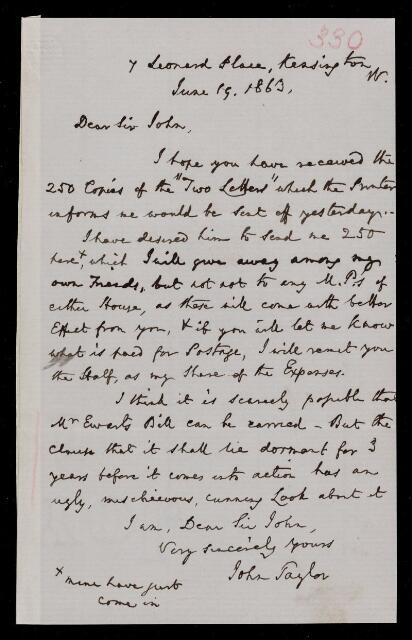 330
7 Leonard Place, Kensington
W.
June 19. 1863,
Dear Sir John,
I hope you have received the
250 Copies of the "Two Letters" which the Printer
informs me would be sent off yesterday..
I have desired him to send me 250
here+, which I will give away among my
own Friends, but not not to any M.P.s of
either House, as these will come with better
Effect from you, & if you will let me know
what is paid for Postage, I will remit you
the Half, as my Share of the Expenses.
I think it is scarcely possible that
Mr Ewart's Bill can be carried - But the
clause that it shall lie dormant for 3
years before it comes into action has an
ugly, mischievous, cunning Look about it
I am, Dear Sir John,
Very sincerely yours
John Taylor
+ mine have just
come in